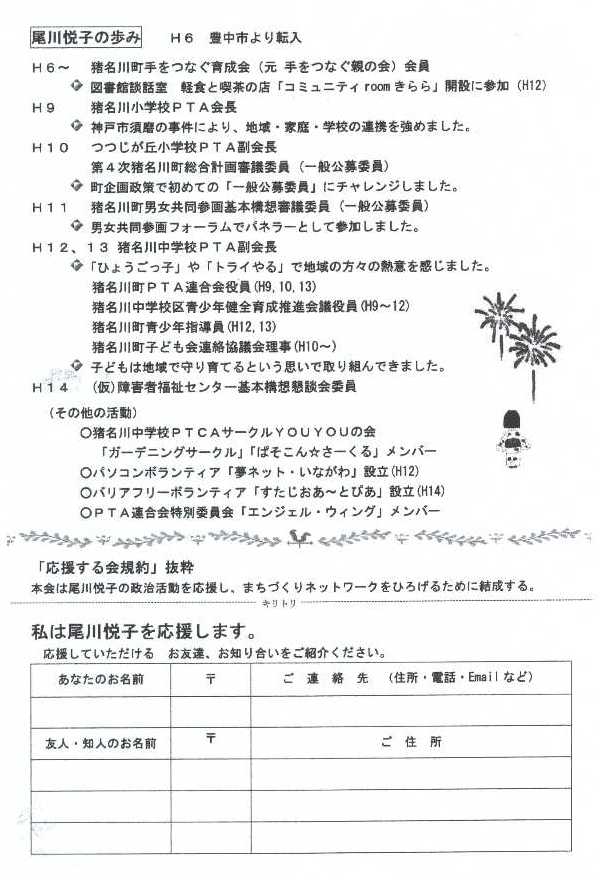 尾川悦子の歩み　Ｈ６　豊中市より転入
Ｈ６～　猪名川町手をつなぐ育成会（元 手をつなぐ親の会）会員
図書館談話室　軽食と喫茶の店「コミュニティroomきらら」開設に参加（H12）
Ｈ９　猪名川小学校ＰＴＡ会長
神戸市須磨の事件により、地域・家庭・学校の連携を強めました。
Ｈ１０　つつじが丘小学校ＰＴＡ副会長
第４次猪名川町総合計画審議委員（一般公募委員）
町企画政策で初めての「一般公募委員」にチャレンジしました。
Ｈ１１　猪名川町男女共同参画基本構想審議委員（一般公募委員）
男女共同参画フォーラムでパネラーとして参加しました。
Ｈ１２、１３ 猪名川中学校ＰＴＡ副会長
「ひょうごっ子」や「トライやる」で地域の方々の熱意を感じました。
猪名川町ＰＴＡ連合会役員(H9,10,13)
猪名川中学校区青少年健全育成推進会議役員(H9～12)
猪名川町青少年指導員(H12,13)
猪名川町子ども会連絡協議会理事(H10～)
子どもは地域で守り育てるという思いで取り組んできました。
Ｈ１４　（仮）障害者福祉センター基本構想懇談会委員
（その他の活動）
○猪名川中学校ＰＴＣＡサークルＹＯＵＹＯＵの会
「ガーデニングサークル」「ぱそこん☆さーくる」メンバー
○パソコンボランティア「夢ネット・いながわ」設立(H12)
○バリアフリーボランティア「すたじおあ～とぴあ」設立(H14)
○ＰＴＡ連合会特別委員会「エンジェル・ウィング」メンバー
「応援する会規約」抜粋
本会は尾川悦子の政治活動を応援し、まちづくりネットワークをひろげるために結成する。
キリトリ
私は尾川悦子を応援します。
応援していただける　お友達、お知り合いをご紹介ください。
あなたのお名前　〒　ご　連　絡　先　（住所・電話・Emailなど）
友人・知人のお名前　〒　ご　住　所